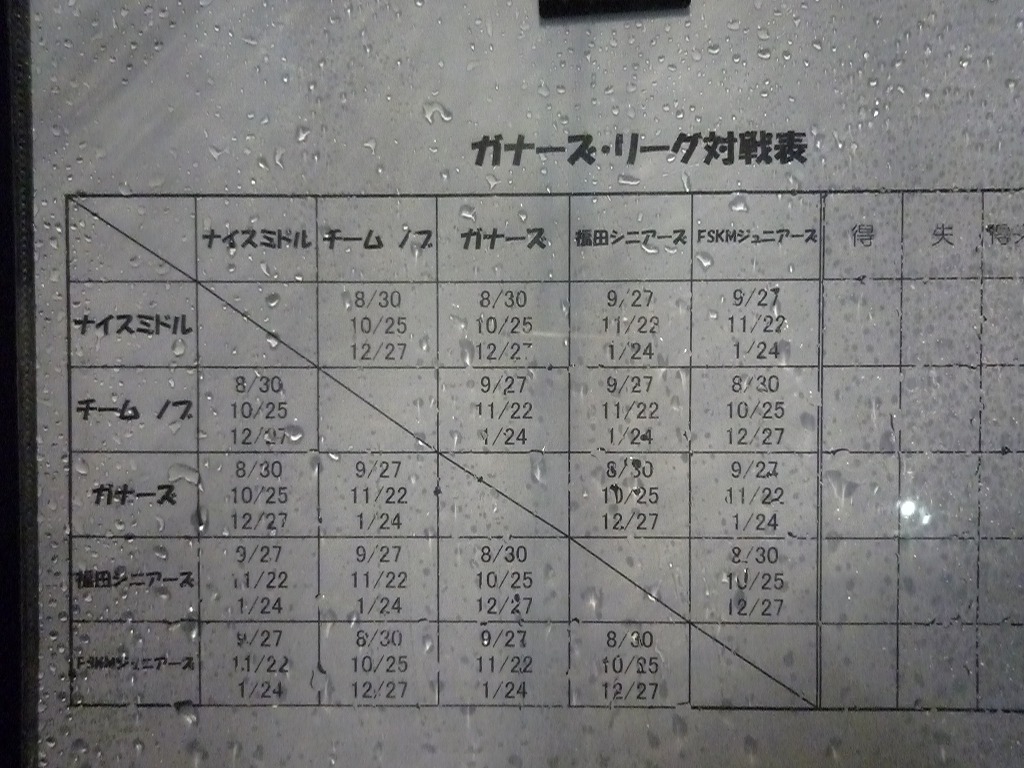 ガナーズ・リーグ対戦表
ナイスミドル チーム ノブ ガナーズ 福田シニアーズ FSKMジュニアーズ 得 失 得失
ナイスミドル
8/30 8/30 9/27 9/27
10/25 10/25 11/22 11/22
12/27 12/27 1/24 1/24
チーム ノブ
8/30 9/27 9/27 8/30
10/25 11/22 11/22 10/25
12/27 1/24 1/24 12/27
ガナーズ
8/30 9/27 8/30 9/27
10/25 11/22 10/25 11/22
12/27 1/24 12/27 1/24
福田シニアーズ
9/27 9/27 8/30 8/30
11/22 11/22 10/25 10/25
1/24 1/24 12/27 12/27
FSKMジュニアーズ
9/27 8/30 9/27 8/30
11/22 10/25 11/22 10/25
1/24 12/27 1/24 12/27